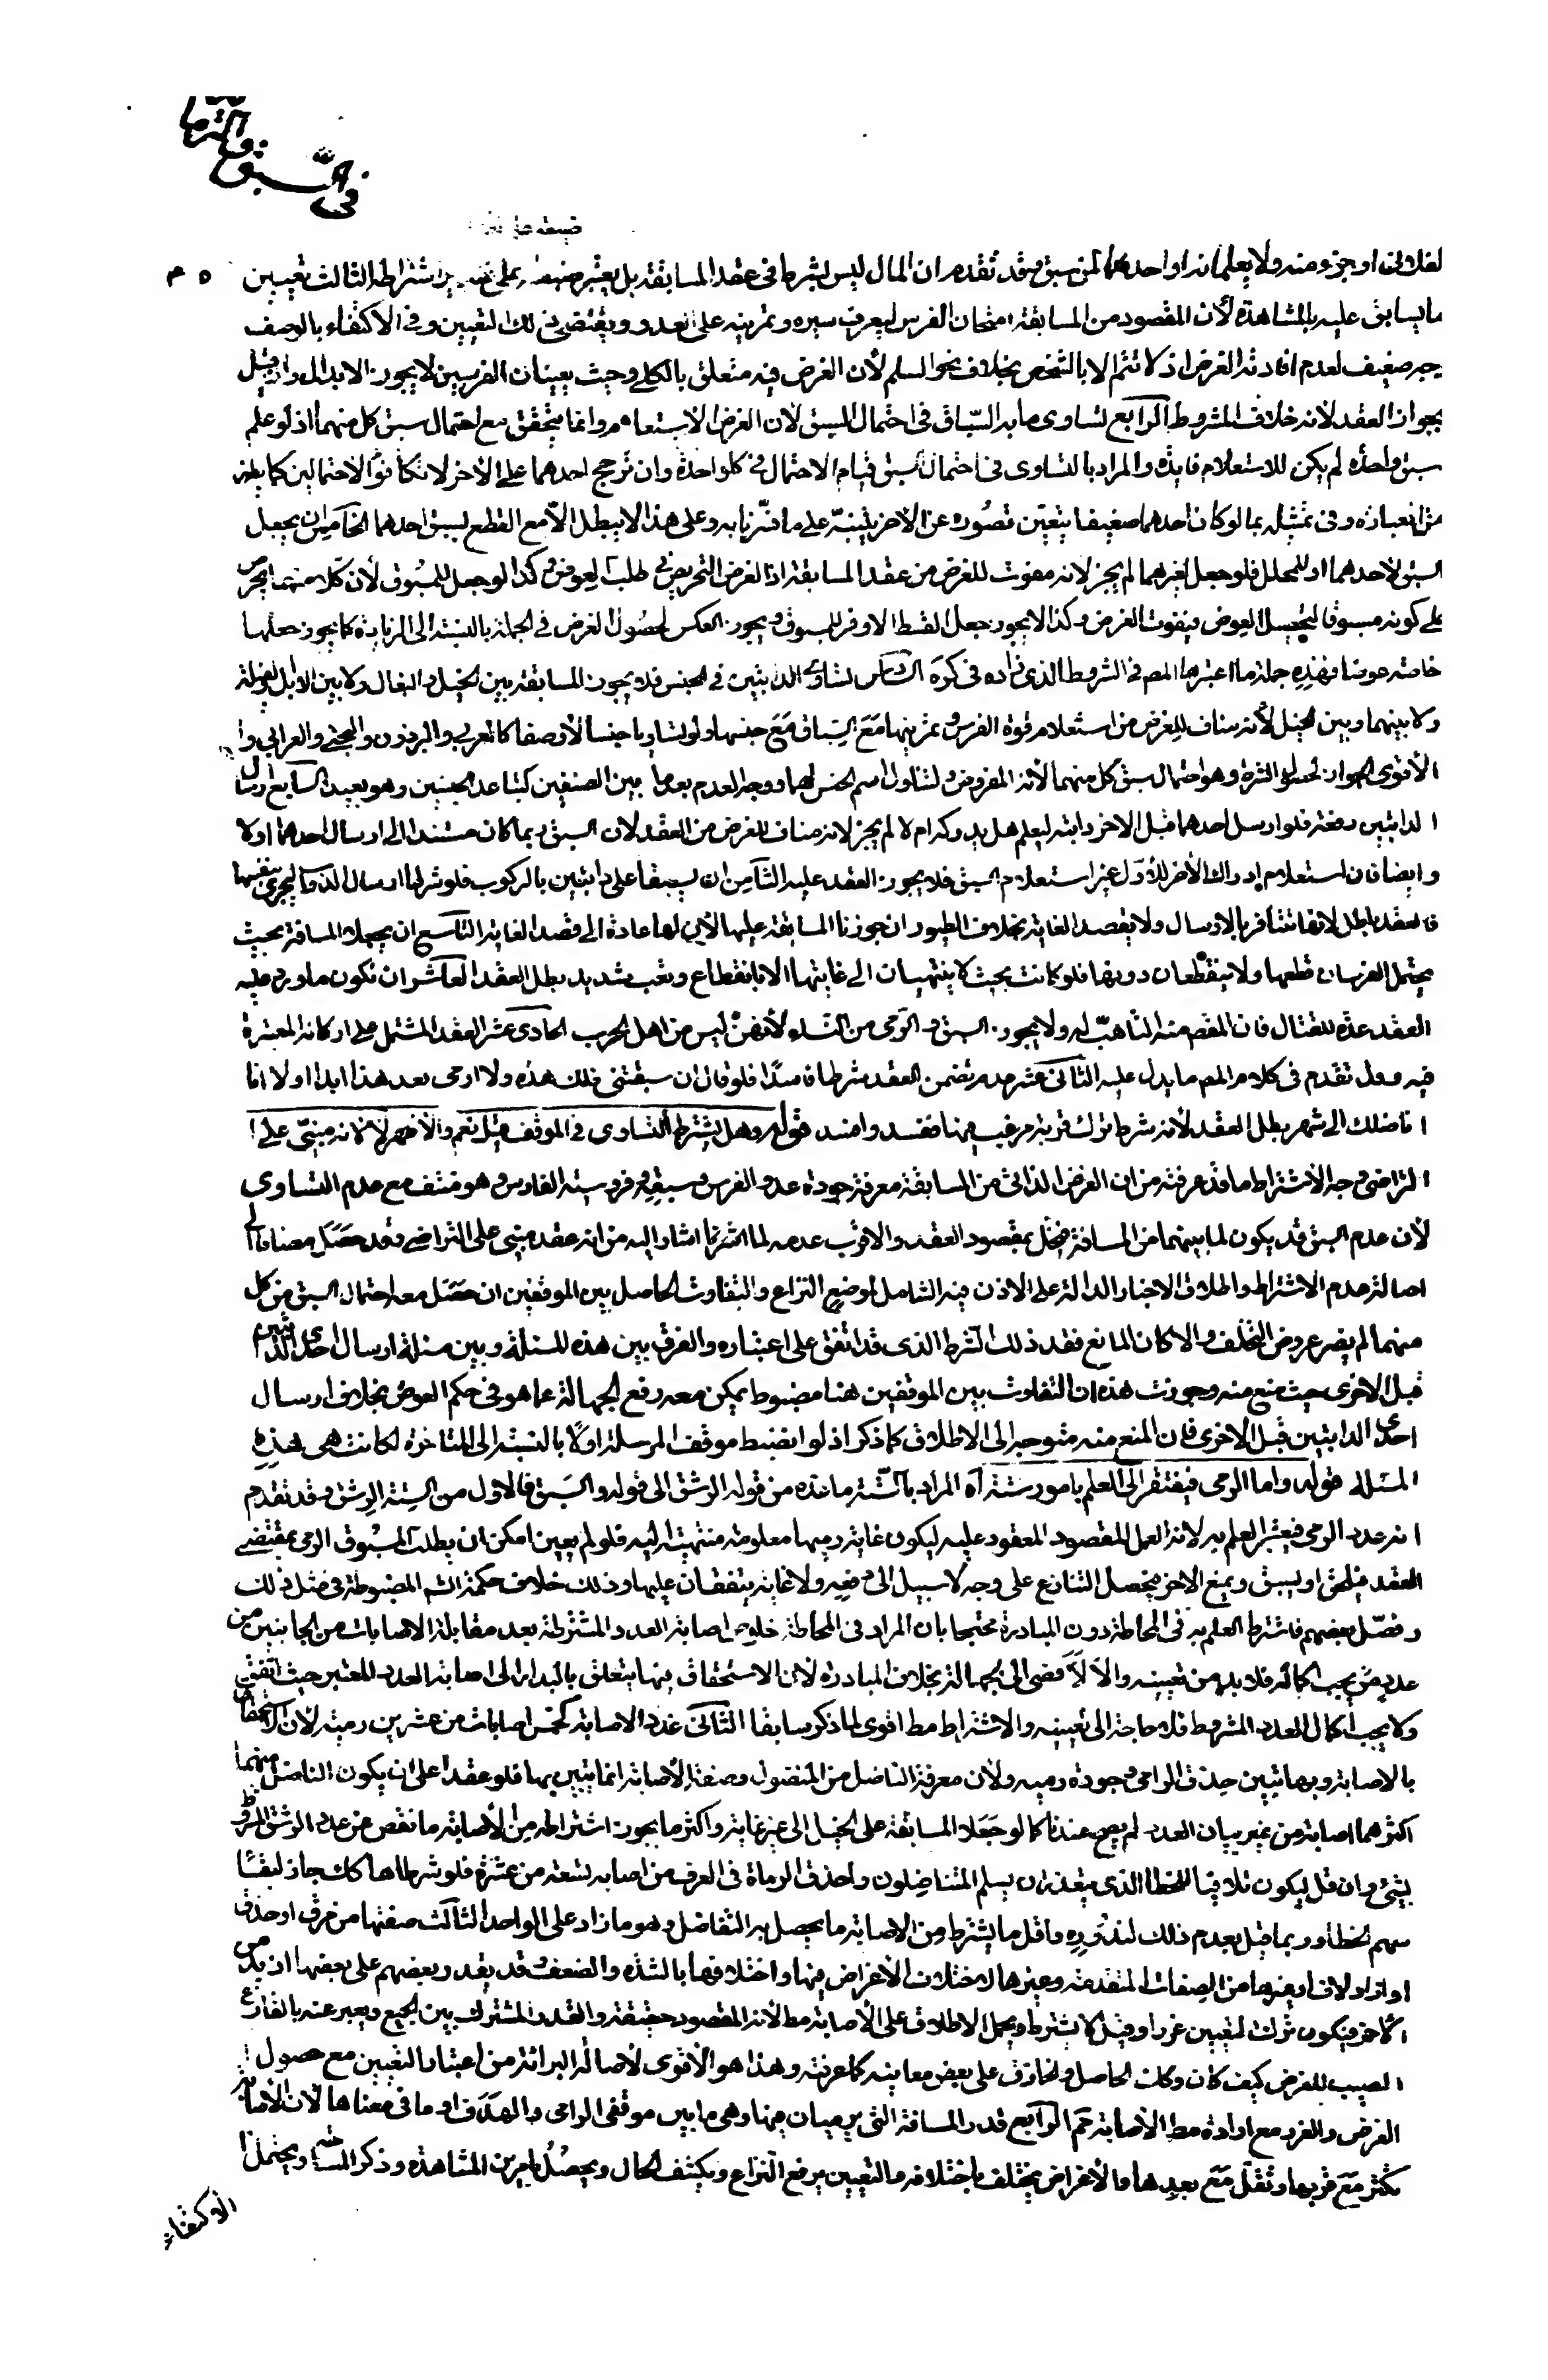 في السبق والرما
لفلان او جزء منه ولا يعلمانه او احدهما لمن سبق وقد تقدم ان المال ليس بشرط في عقد المسابقة بل يعتبر اشتراطه الثالث تعيين
ما يسابق عليه بالمشاهدة لأن المقصود من المسابقة امتحان الفرس ليعرف سيره وتمرينه على العدو ويقتضي ذلك التعيين وفي الاكتفاء بالوصف
وجه ضعيف لعدم افادته الغرض اذ لا تتم الا بالشخص بخلاف نحو السلم لأن الغرض فيه متعلق بالكلي وحيث يعينان الفرسين لا يجوز الابدال وان قيل
بجواز العقد لانه خلاف المشروط الرابع تساوي ما به السباق في احتمال السبق لان الغرض الاستعلام وانما يتحقق مع احتمال سبق كل منهما اذ لو علم
سبق واحد لم يكن للاستعلام فايدة والمراد بالتساوي في احتمال السبق قيام الاحتمال في كل واحدة وان ترجح احدهما على الأخر لا تكافؤ الاحتمالين كما يظهر
من العبارة وفي تمثيله بما لو كان احدهما ضعيفا يتعين قصوره عن الأخر ينبه على ما قررنا به وعلى هذا لا يبطل الا مع القطع بسبق احدهما الخامس ان يجعل
السبق لاحدهما او للمحلل فلو جعل لغيرهما لم يجز لانه مفوت للغرض من عقد المسابقة اذ الغرض التحريض في طلب العوض وكذا لو جعل للمسبوق لأن كلا منهما يحرص
على كونه مسبوقا لتحصيل العوض فيفوت الغرض وكذا لا يجوز جعل القسط الاوفر للمسبوق ويجوز العكس لحصول الغرض في الجملة بالنسبة الى الزيادة كما يجوز جعلها
خاصة عوضا فهذه جملة ما اعتبرها المص في الشروط الذي زاده في كره السادس تساوي الدابتين في الجنس فلا يجوز المسابقة بين الخيل والبغال ولا بين الابل والفيلة
ولا بينهما وبين الخيل لأنه مناف للغرض من استعلام قوة الفرس وتمرينها مع السباق مع جنسها ولو تساويا جنسا لا وصفا كالعربي والبرذون والبختي والعرابي
الأقوى الجواز لحصول الشرط وهو احتمال سبق كل منهما لأنه المفروض ولتناول اسم الجنس لهما ووجه العدم بعد ما بين الصنفين كتباعد الجنسين وهو بعيد السابع ارسال
الدابتين دفعة فلو ارسل احدهما قبل الاخر دابته ليعلم هل يدركه ام لا لم يجز لانه مناف للغرض من العقد لان السبق ربما كان مستندا الى ارسال احدهما اولا
وايضا فان استعلام ادراك الأخر للأول غير استعلام السبق فلا يجوز العقد عليه الثامن ان يسبقا على دابتين بالركوب فلو شرطا ارسال الدواب لتجري بنفسها
فالعقد باطل لانها تتنافر بالارسال ولا يقصد الغاية بخلاف الطيور ان جوزنا المسابقة عليها لأن لها عادة الى قصد الغاية التاسع ان يجعلا المسافة بحيث
يحتمل الفرسان قطعها ولا ينقطعان دونها فلو كانت بحيث لا ينتهيان الى غايتها الا بانقطاع وتعب شديد بطل العقد العاشر ان تكون ما ورد عليه
العقد عدة للقتال فان المقص منه التأهب له ولا يجوز السبق والرمي من النساء لأنهن ليس من اهل الحرب الحادي عشر العقد المشتمل على اركانه المعتبرة
فيه وقد تقدم في كلام المص ما يدل عليه الثاني عشر عدم تضمن العقد شرطا فاسدا فلو قال ان سبقتني فلك هذه ولا ارمي بعد هذا ابدا اولا
اناضلك الى شهر بطل العقد لأنه شرط ترك قربة مرغب فيها ففسد وافسد قوله وهل يشترط التساوي في الموقف قيل نعم والأظهر لا لأنه مبني على
التراضي وجه الاشتراط ما قد عرفته من ان الغرض الذاتي من المسابقة معرفة جودة عدو الفرس وسبقه وفروسية الفارس وهو منتف مع عدم التساوي
لأن عدم السبق قد يكون لما بينهما من المسافة فيخل بمقصود العقد والاقرب عدمه لما اشار اليه من انه عقد مبني على التراضي وقد حصل مضافا الى
اصالة عدم الاشتراط واطلاق الاخبار الدالة على الاذن فيه الشامل لموضع النزاع والتفاوت الحاصل بين الموقفين ان حصل معه احتمال السبق من كل
منهما لم يضر عروض التخلف والا كان المانع فقد ذلك الشرط الذي قد اتفق على اعتباره والفرق بين هذه المسئلة وبين مسئلة ارسال احدى الدابتين
قبل الاخرى حيث منع منه وجوزت هذه ان التفاوت بين الموقفين هنا مضبوط يمكن معه رفع الجهالة عما هو في حكم العوض بخلاف ارسال
احدى الدابتين قبل الاخرى فان المنع منه متوجه الى الاطلاق كما ذكر اذ لو انضبط موقف المرسلة اولا بالنسبة الى المتاخرة لكانت هي هذه
المسئلة قوله واما الرمي فيفتقر الى العلم بامور ستة اه المراد بالستة ما عده من قوله الرشق الى قوله والسبق فالاول من الستة الرشق وقد تقدم
انه عدد الرمي فيعتبر العلم به لانه العمل المقصود المعقود عليه ليكون غاية رميهما معلومة منتهية اليه فلو لم يعين امكن ان يطلب المسبوق الرمي بمقتضى
العقد فيلحق او يسبق ويمنع الاخر فيحصل التنازع على وجه لا سبيل الى دفعه ولا غاية يتفقان عليها وذلك خلاف حكمة الشرع المضبوطة في مثل ذلك
وفصل بعضهم فاشترط العلم به في المحاطة دون المبادرة محتجا بان المراد في المحاطة خلوص اصابة العدد المشترطة بعد مقابلة الاصابات من الجانبين من
عدد من يجب اكماله فلا بد من تعيينه والا لأفضى الى الجهالة بخلاف المبادرة لان الاستحقاق فيها يتعلق بالبدار الى اصابة العدد المعتبر حيث اتفق
ولا يجب اكمال العدد المشروط فلا حاجة الى تعيينه والاشتراط مط اقوى لما ذكر سابقا الثاني عدد الاصابة كخمس اصابات من عشرين رمية لأن الاستحقاق
بالاصابة وبها يتبين حذق الرامي وجودة رميه ولأن معرفة الناضل من المنضول وصفة الاصابة انما يتبين بها فلو عقدا على ان يكون الناضل منهما
اكثرهما اصابة من غير بيان العدد لم يصح عندنا كما لو جعلا المسابقة على الخيل الى غير غاية واكثر ما يجوز اشتراطه من الأصابة ما نقص من عدد الرشق المشروط
بشيء وان قل ليكون تلافيا للخطأ الذي يتعذر ان يسلم المتناضلون واحذق الرماة في العرف من اصابه تسعة من عشرة فلو شرطاها كك جاز لبقاء
سهم الخطأ وربما قيل بعدم ذلك لندوره واقل ما يشترط من الاصابة ما يحصل به التفاضل وهو ما زاد على الواحد الثالث صفتها من خرق او حذق
او ازدلاف او غيرها من الصفات المتقدمة وغيرها لاختلاف الأغراض فيها واختلافها بالشدة والضعف وقد يقدر بعضهم على بعضها ازيد من
الأخر فيكون ترك التعيين غررا وقيل لا يشترط ويحمل الاطلاق على الأصابة مط لأنه المقصود حقيقة والقدر المشترك بين الجميع ويعبر عنه بالقارع
المصيب للغرض كيف كان وكان الحاصل والخارق على بعض معانيه كما عرفته وهذا هو الأقوى لأصالة البرائة من اعتبار التعيين مع حصول
الغرض والغرر مع ارادة مط الأصابة حم الرابع قدر المسافة التي يرميان فيها وهي ما بين موقفي الرامي والهدف او ما في معناها لأن الأصابة
تكثر مع قربها وتقل مع بعدها والأغراض يختلف باختلافه والتعيين يرفع النزاع ويكشف الحال ويحصل بامرين المشاهدة وذكر المساحة ويحتمل
الاكتفاء